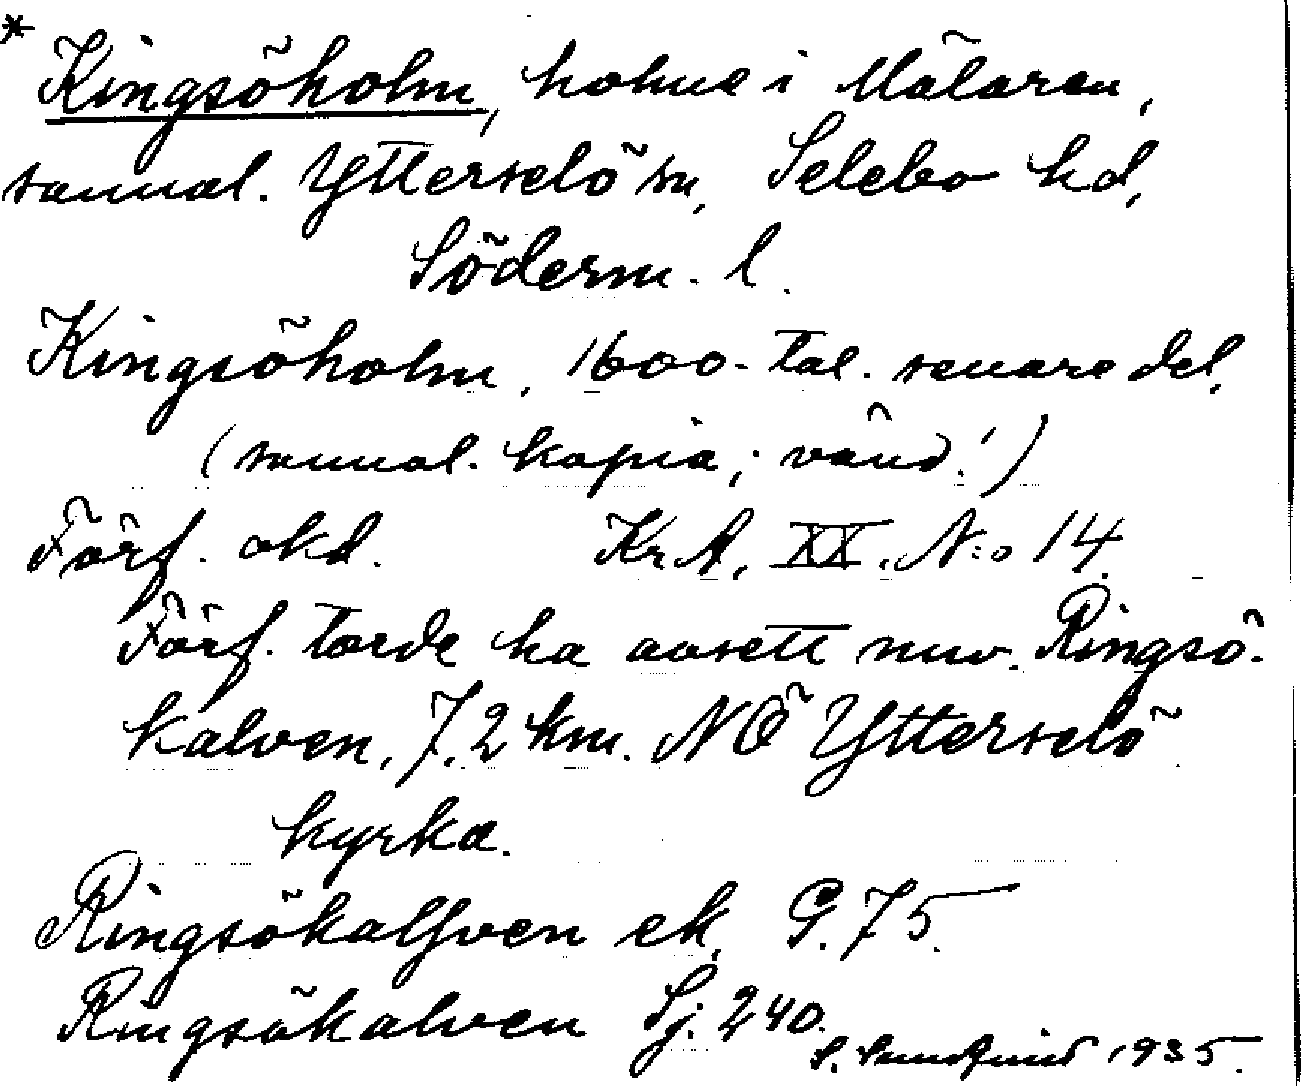 * Kingsöholm, holme i Mälaren,
samal. Ytterselö sn, Selebo hd,
Söderm. l.
Kingsöholm, 1600-tal. senare del,
(samal. kopia; vänd!)
Förf. okd. KrA, XX. N:o 14.
Förf. torde ha avsett nuv. Ringsö-
kalven, 7,2 km. NÖ Ytterselö
kyrka.
Ringsökalfven ek. G. 75.
Ringsökalven Sj. 240.
S. Sundqvist 1935.